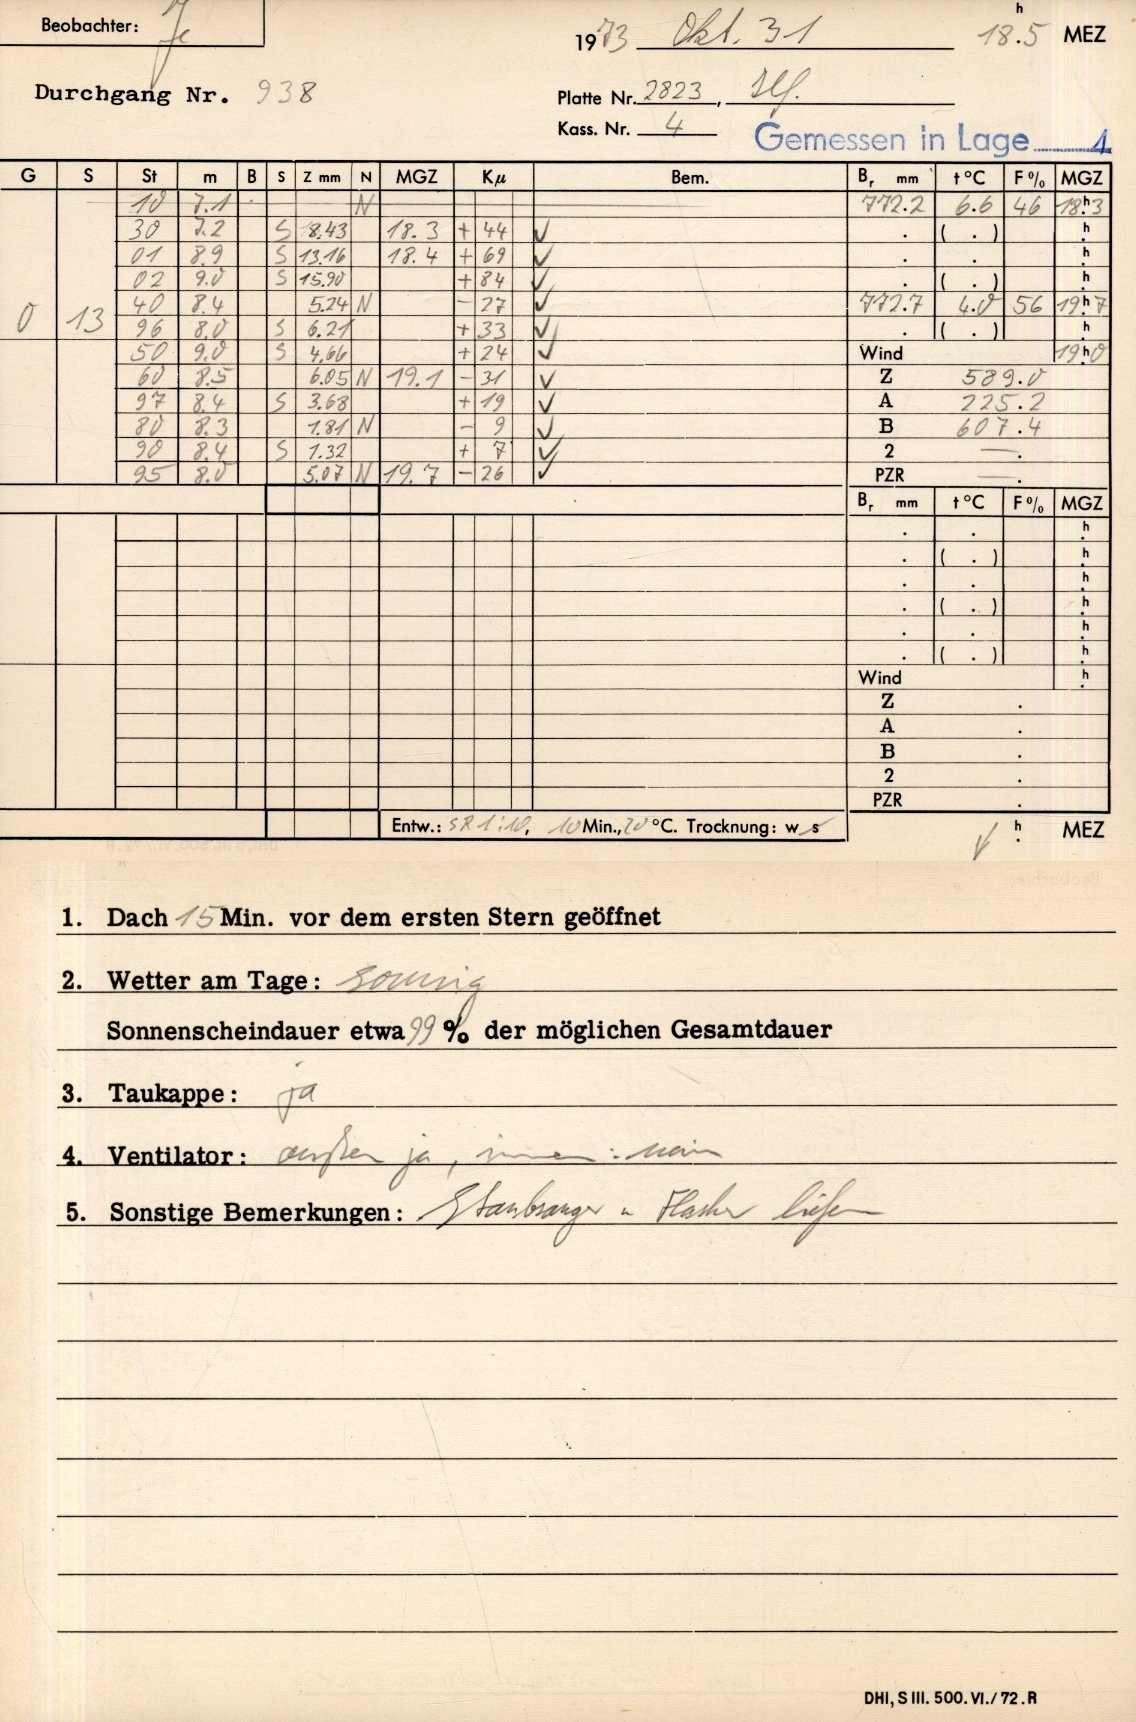 Beobachter: Je
1973 Okt. 31 18.5 h MEZ
Durchgang Nr. 938
Platte Nr. 2823,
Kass. Nr. 4
Gemessen in Lage 1
G S St m B S Z mm N MGZ Kμ Bem. Br mm t °C F % MGZ
10 7.1 N 772.2 6.6 46 18.h3
30 7.2 S 8.43 18.3 + 44 ✓ . ( . ) h
01 8.9 S 13.16 18.4 + 69 ✓ . . h
02 9.0 S 15.90 + 84 ✓ . ( . ) h
0 13 40 8.4 5.24 N - 27 ✓ 772.7 4.0 56 19.h7
96 8.0 S 6.21 + 33 ✓ . ( . ) h
50 9.0 S 4.66 + 24 ✓ Wind 19.h0
60 8.5 6.05 N 19.1 - 31 ✓ Z 589.0
97 8.4 S 3.68 + 19 ✓ A 225.2
80 8.3 1.81 N - 9 ✓ B 607.4
90 8.4 S 1.32 + 7 ✓ 2 — .
95 8.0 5.07 N 19.7 - 26 ✓ PZR — .
Br mm t °C F % MGZ
. . h
. ( . ) h
. . h
. ( . ) h
. . h
. ( . ) h
Wind h
Z .
A .
B .
2 .
PZR .
Entw.: SR 1:10, 10 Min., 20 °C. Trocknung: w s
✓ h MEZ
1. Dach 15 Min. vor dem ersten Stern geöffnet
2. Wetter am Tage: sonnig
Sonnenscheindauer etwa 99 % der möglichen Gesamtdauer
3. Taukappe: ja
4. Ventilator: außen ja, innen: nein
5. Sonstige Bemerkungen: Staubsauger u Flasher liefen
DHI, S III. 500. VI./72. R